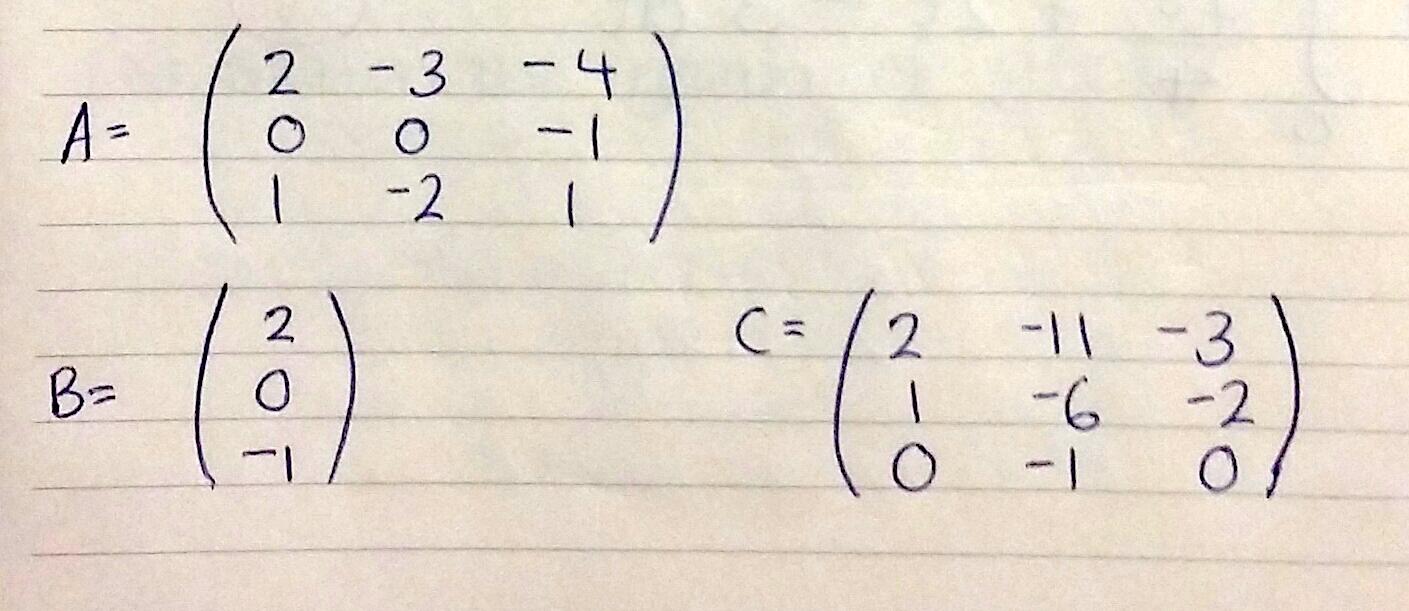 A = ( 2 -3 -4
0 0 -1
1 -2 1 )
B = ( 2
0
-1 )
C = ( 2 -11 -3
1 -6 -2
0 -1 0 )